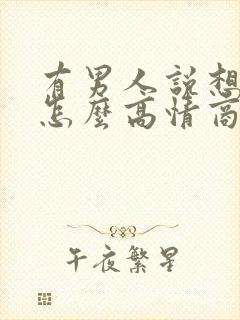 有男人說想
怎麼高情商
午夜繁星